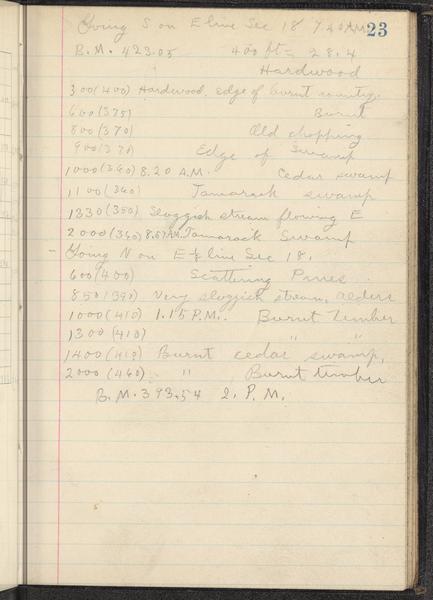 Going S on E line Sec 18 7.40 A.M. 23
B.M. 423.05 400 ft = 28.4
Hardwood
300 (400) Hardwood. edge of burnt country.
600 (375) Burnt
800 (370) Old chopping
900 (370) Edge of Swamp
1000 (360) 8.20 A.M. Cedar swamp
1100 (360) Tamarack swamp
1330 (350) Sloggish stream flowing E
2000 (360) 8.57 A.M. Tamarack Swamp
Going N on E line Sec 18.
600 (400) Scattering Pines
850 (390) Very sloggish stream, alders
1000 (410) 1.15 P.M. Burnt Timber
1300 (410) " "
1400 (410) Burnt cedar swamp,
2000 (460) " Burnt timber
B.M. 393.54 2. P.M.